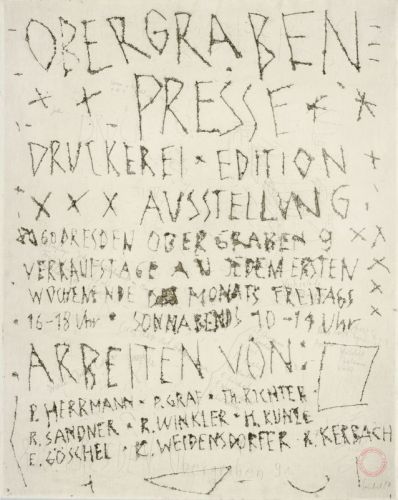 OBERGRABEN
PRESSE
DRUCKEREI · EDITION
X X X AUSSTELLUNG
8060 DRESDEN OBERGRABEN 9 XX
VERKAUFSTAGE AN JEDEM ERSTEN
WOCHENENDE DES MONATS FREITAGS
16-18 Uhr · SONNABENDS 10-14 Uhr
ARBEITEN VON:
P. HERRMANN · P. GRAF · TH. RICHTER
R. SANDNER · R. WINKLER · H. KUNZE
E. GÖSCHEL · K. WEIDENSDORFER · A. KERBACH